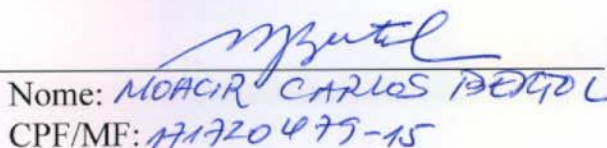 Nome: MOACIR CARLOS BERTOL
CPF/MF: 171720479-15